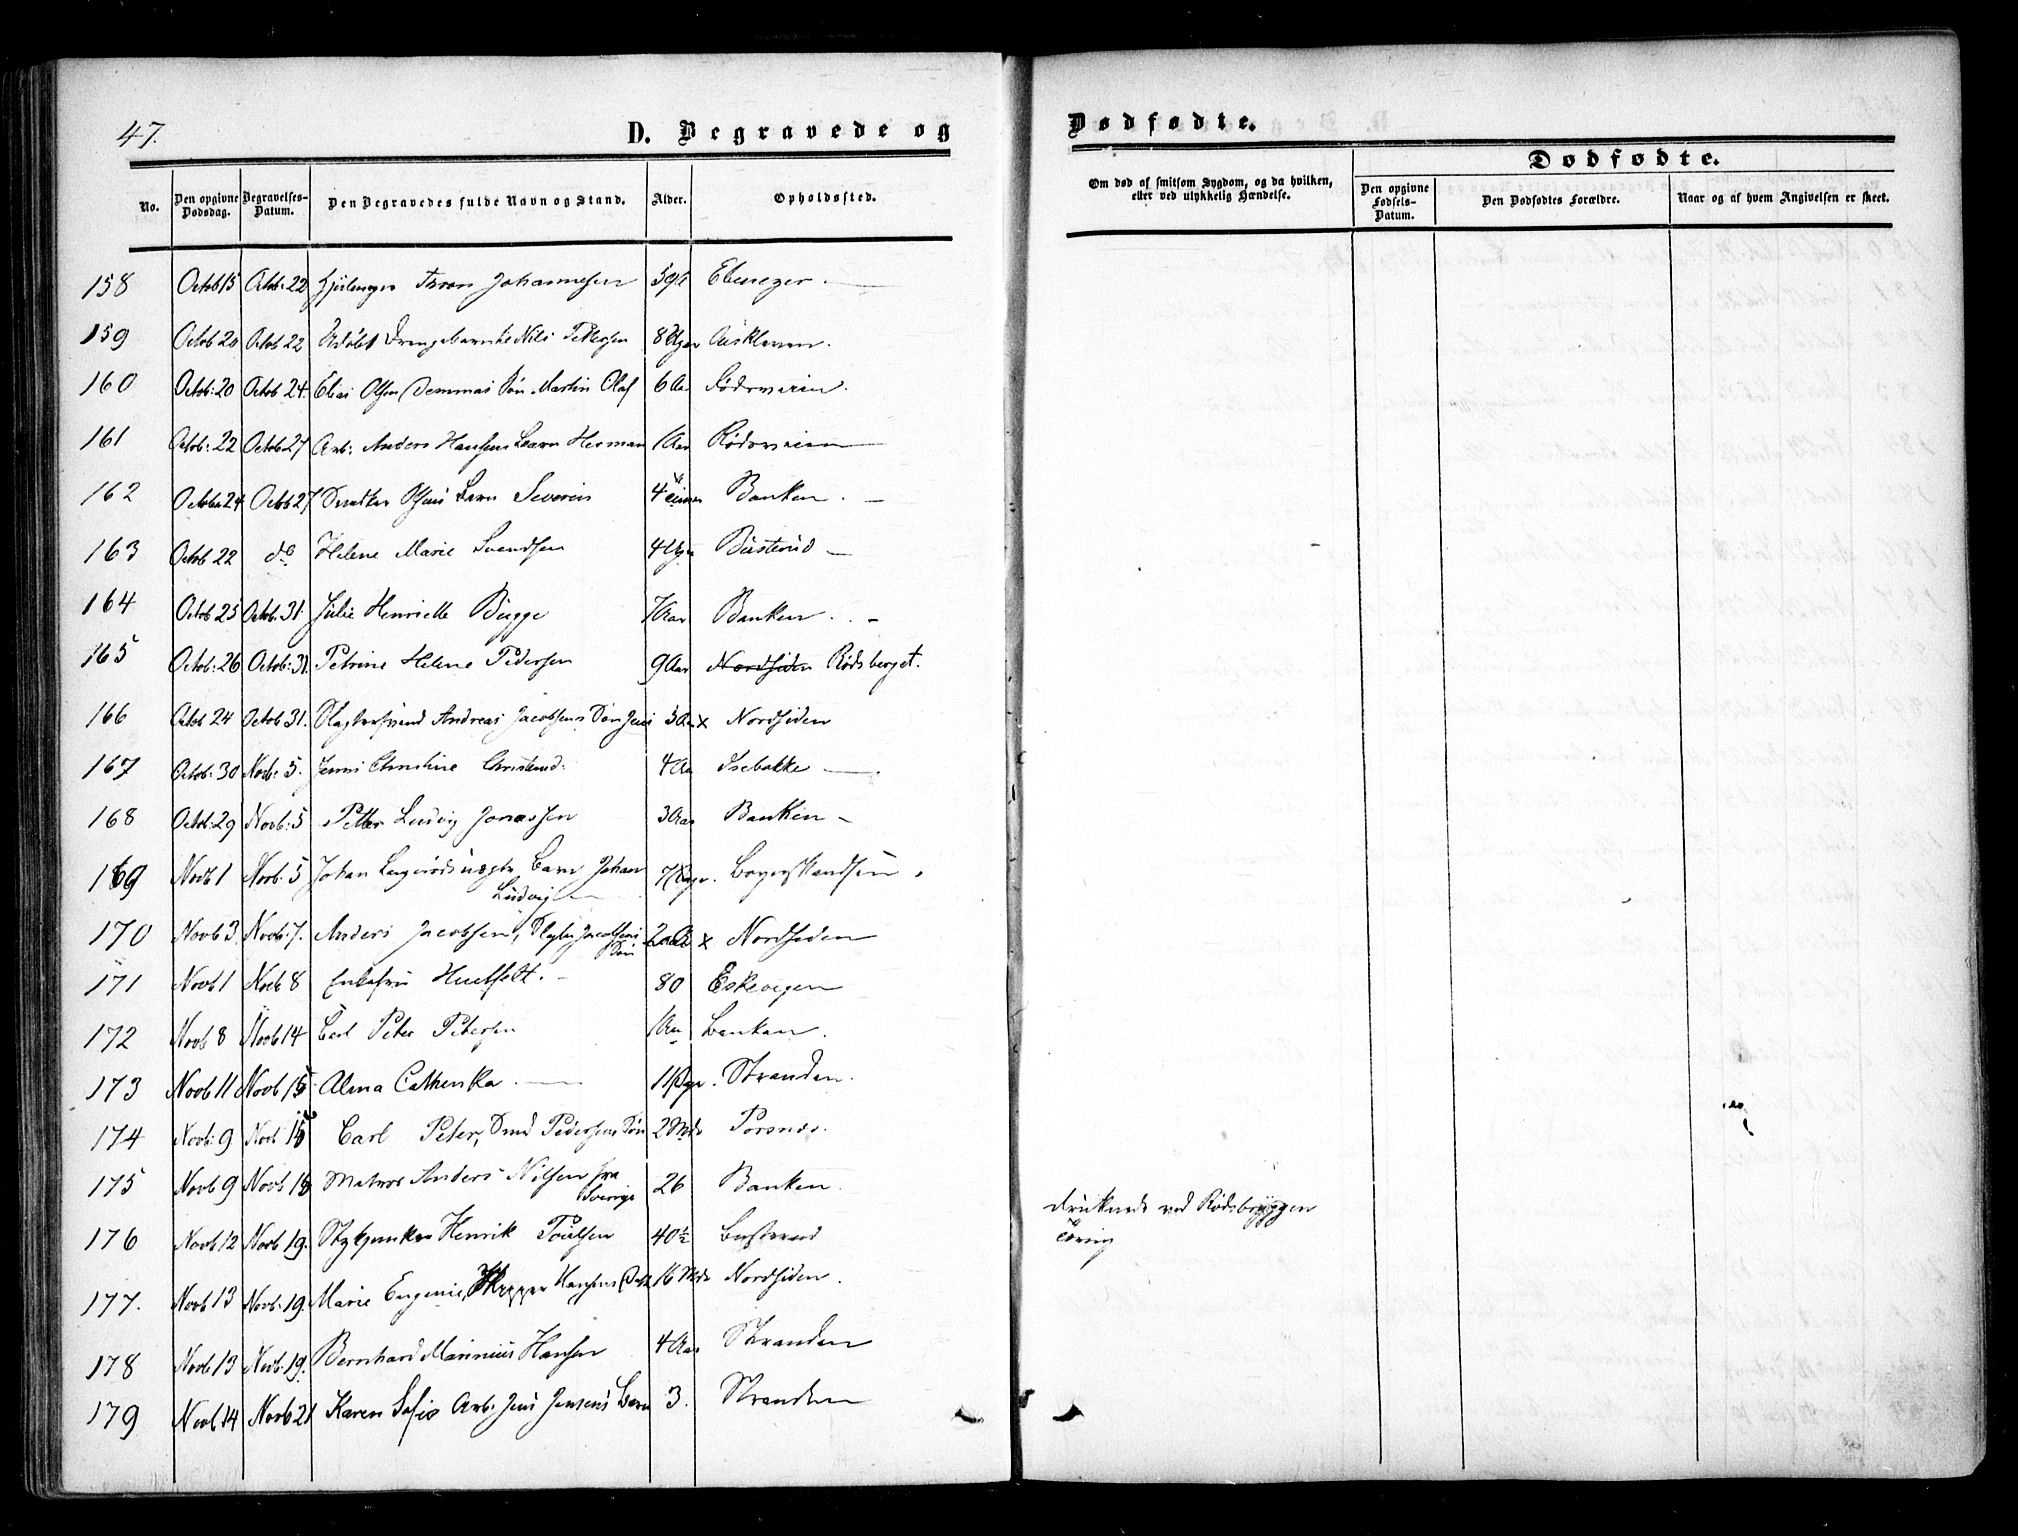 47.
D. Begravede og
Dødfødte.
No.
Den opgivne Dødsdag.
Begravelses-Datum.
Den Begravedes fulde Navn og Stand.
Alder.
Opholdssted.
Om død af smitsom Sygdom, og da hvilken, eller ved ulykkelig Hændelse.
Dødfødte.
Den opgivne Fødsels-Datum.
Den Dødfødtes Forældre.
Naar og af hvem Angivelsen er skeet.
158 Octob 15 Octob: 22 Johannesen Ebenezer
159 Octob 20 Octob 22 Drengebarn Nils Pettersen 8
160 Octob: 20 Octob 24. Elias Olsen Søn Martin Olaf 6 Aar
161 Octob: 22 Octob 27 Arb: Anders Hansens Barn Herman 1 Aar
162 Octob 24 Octob 27 Barn Severin 4 Banken
163 Octob 22 do Helene Marie Svendsen 4 Busterud
164 Octob 25 Octob. 31. Julie Henriette Bugge 7 Aar Banken
165 Octob: 26 Octob: 31. Petrine Helene Pedersen 9 Aar Nordsiden Rødsberget.
166 Octob 24 Octob 31. Andreas Jacobsens Søn 3 Aar x Nordsiden
167 Octob: 30 Novb: 5. Christine 4 Aar Isebakke
168 Octob: 29 Novb: 5 Petter Ludvig Jonassen 3 Aar Banken
169 Novb 1 Novb: 5 Johan Barn Johan
Ludvig
170 Novb 3 Novb: 7. Anders Jacobsen, Jacobsens
Søn x Nordsiden
171 Novb 1 Novb 8 Enkefru Huitfelt. 80 Eskevigen
172 Novb 8 Novb 14 Carl Peter Petersen 1 Aar Banken.
173 Novb 11 Novb 15 Alma Cathenka 11 Stranden.
174 Novb: 9 Novb 15 Carl Peter, Smed Pedersens Søn 2 Mdr Porsnes.
175 Novb 9 Novb 18 Matros Anders Nilsen fra
Sverige 26 Banken.
druknede ved Rødsbryggen
176 Novb 12 Novb 19. Henrik Poulsen 40½
177. Novb 13 Novb: 19. Marie Eugenie, Skipper Hansens 16 Mdr Nordsiden.
178 Novb 13 Novb. 19. Bernhard Marinius Hansen 4 Aar Stranden
179 Novb 14 Novb 21 Karen Sofie Arb: Jens Jensens Barn 3. Stranden